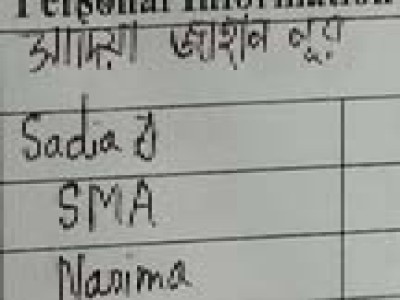 Personal Information
জাহান নূর
Sadia J
SMA
Nasima